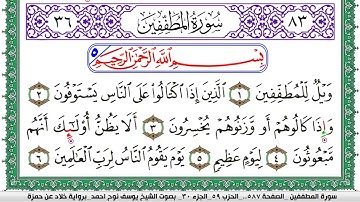 ٣٦ سُورَةُ الْمُطَفِّفِينَ ٨٣
بِسْمِ اللَّهِ الرَّحْمَٰنِ الرَّحِيمِ
وَيْلٌ لِلْمُطَفِّفِينَ ١ الَّذِينَ إِذَا اكْتَالُوا عَلَى النَّاسِ يَسْتَوْفُونَ ٢
وَإِذَا كَالُوهُمْ أَو وَّزَنُوهُمْ يُخْسِرُونَ ٣ أَلَا يَظُنُّ أُولَٰئِكَ أَنَّهُم
مَّبْعُوثُونَ ٤ لِيَوْمٍ عَظِيمٍ ٥ يَوْمَ يَقُومُ النَّاسُ لِرَبِّ الْعَالَمِينَ ٦
سورة المطففين _الصفحة ٥٨٧_ الحزب ٥٩_ الجزء ٣٠_ بصوت الشيخ يوسف نوح احمد_ برواية خلاد عن حمزة